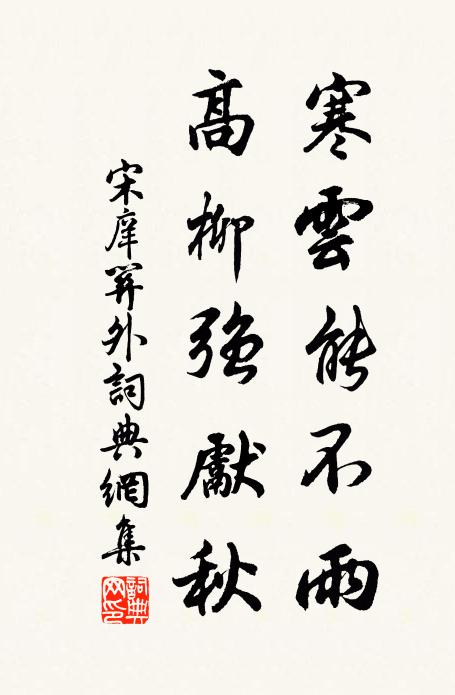 寒雲能不雨
高柳強獻秋
宋庠關外詞典網集
詞典網印